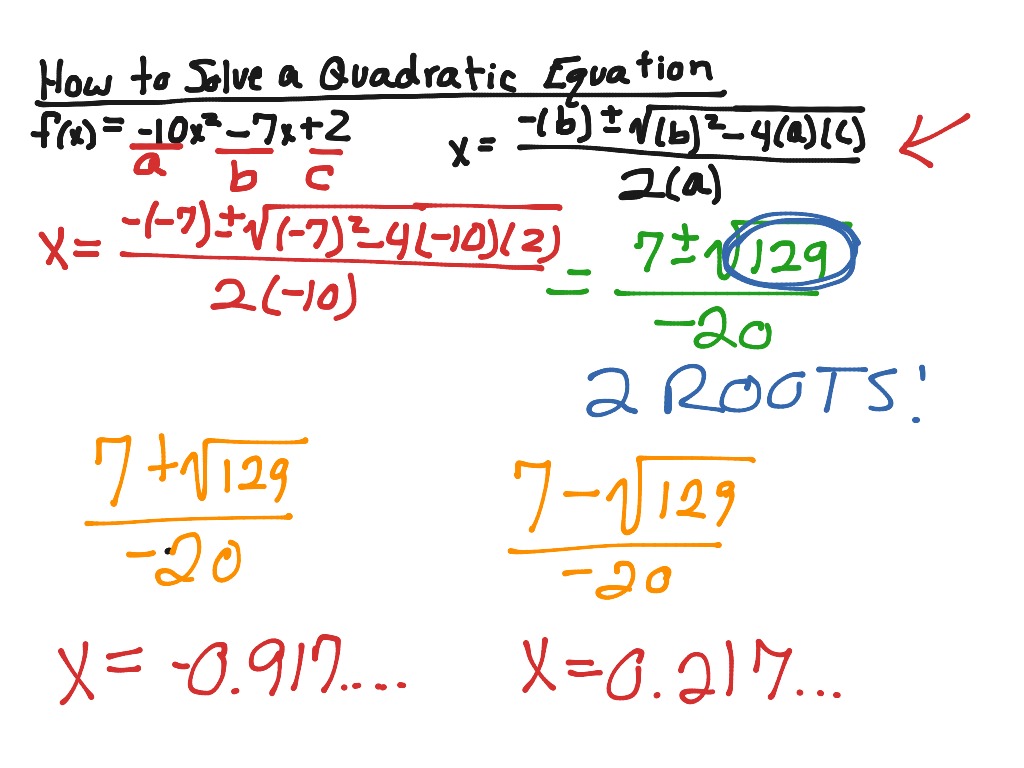 How to Solve a Quadratic Equation
f(x) = -10x² - 7x + 2
a b c
x = -(b) ± √(b)² - 4(a)(c) / 2(a)
x = -(-7) ± √(-7)² - 4(-10)(2) / 2(-10)
= 7 ± √129 / -20
2 ROOTS!
7 + √129 / -20
7 - √129 / -20
x = -0.917....
x = 0.217...